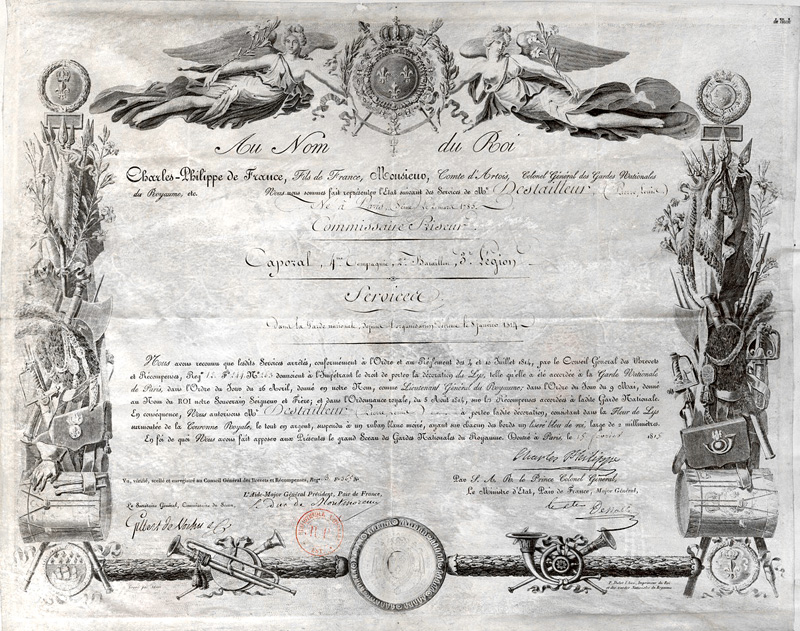 Au Nom du Roi
Charles-Philippe de France, Fils de France, Monsieur, Comte d'Artois, Colonel Général des Gardes Nationales
du Royaume, etc. Nous nous sommes fait représenter l'Etat suivant des Services de Mr. Destailleur (Pierre Louis)
Né à Paris, 1785.
Commissaire Priseur
Caporal, 4me Compagnie, 2e Bataillon, 3e Légion
Services
Dans la Garde nationale, depuis l'organisation le 8 janvier 1814
Nous avons reconnu que lesdits Services arrêtés, conformément à l'Ordre et au Règlement des 4 et 10 Juillet 1814, par le Conseil Général des Brevets
et Récompenses, Reg. No. 243 donnoient à l'Impétrant le droit de porter la décoration du Lys, telle qu'elle a été accordée à la Garde Nationale
de Paris, dans l'Ordre du Jour du 26 Avril, donné en notre Nom, comme Lieutenant Général du Royaume; dans l'Ordre du Jour du 9 Mai, donné
au Nom du ROI notre Souverain Seigneur et Frère; et dans l'Ordonnance royale, du 5 Août 1814, sur les Récompenses accordées à ladite Garde Nationale.
En conséquence, Nous autorisons Mr. Destailleur (Pierre Louis) à porter ladite décoration, consistant dans une Fleur de Lys
surmontée de la Couronne Royale, le tout en argent, suspendu à un ruban blanc moiré, ayant sur chacun des bords un liseré bleu de roi, large de 2 millimètres.
En foi de quoi Nous avons fait apposer aux Présentes le grand Sceau des Gardes Nationales du Royaume. Donné à Paris, le 15 1815
Charles Philippe
Vu, vérifié, scellé et enregistré au Conseil Général des Brevets et Récompenses, Reg.
Par S. A. R. le Prince Colonel Général,
L'Aide-Major Général Président, Pair de France,
Le Ministre d'Etat, Pair de France, Major Général,
Le Secrétaire Général, Commissaire du Sceau,
Le Duc de Montmorency
Le Cte Dessolle
Gilbert de